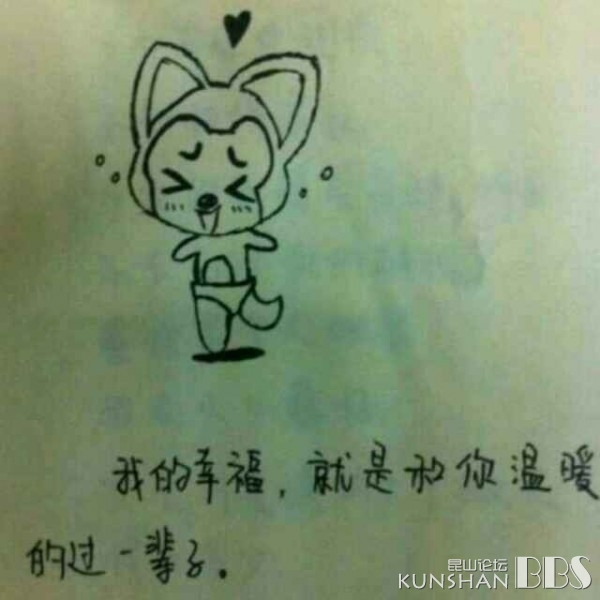 我的幸福，就是和你温暖
的过一辈子。
昆山论坛
KUNSHAN BBS